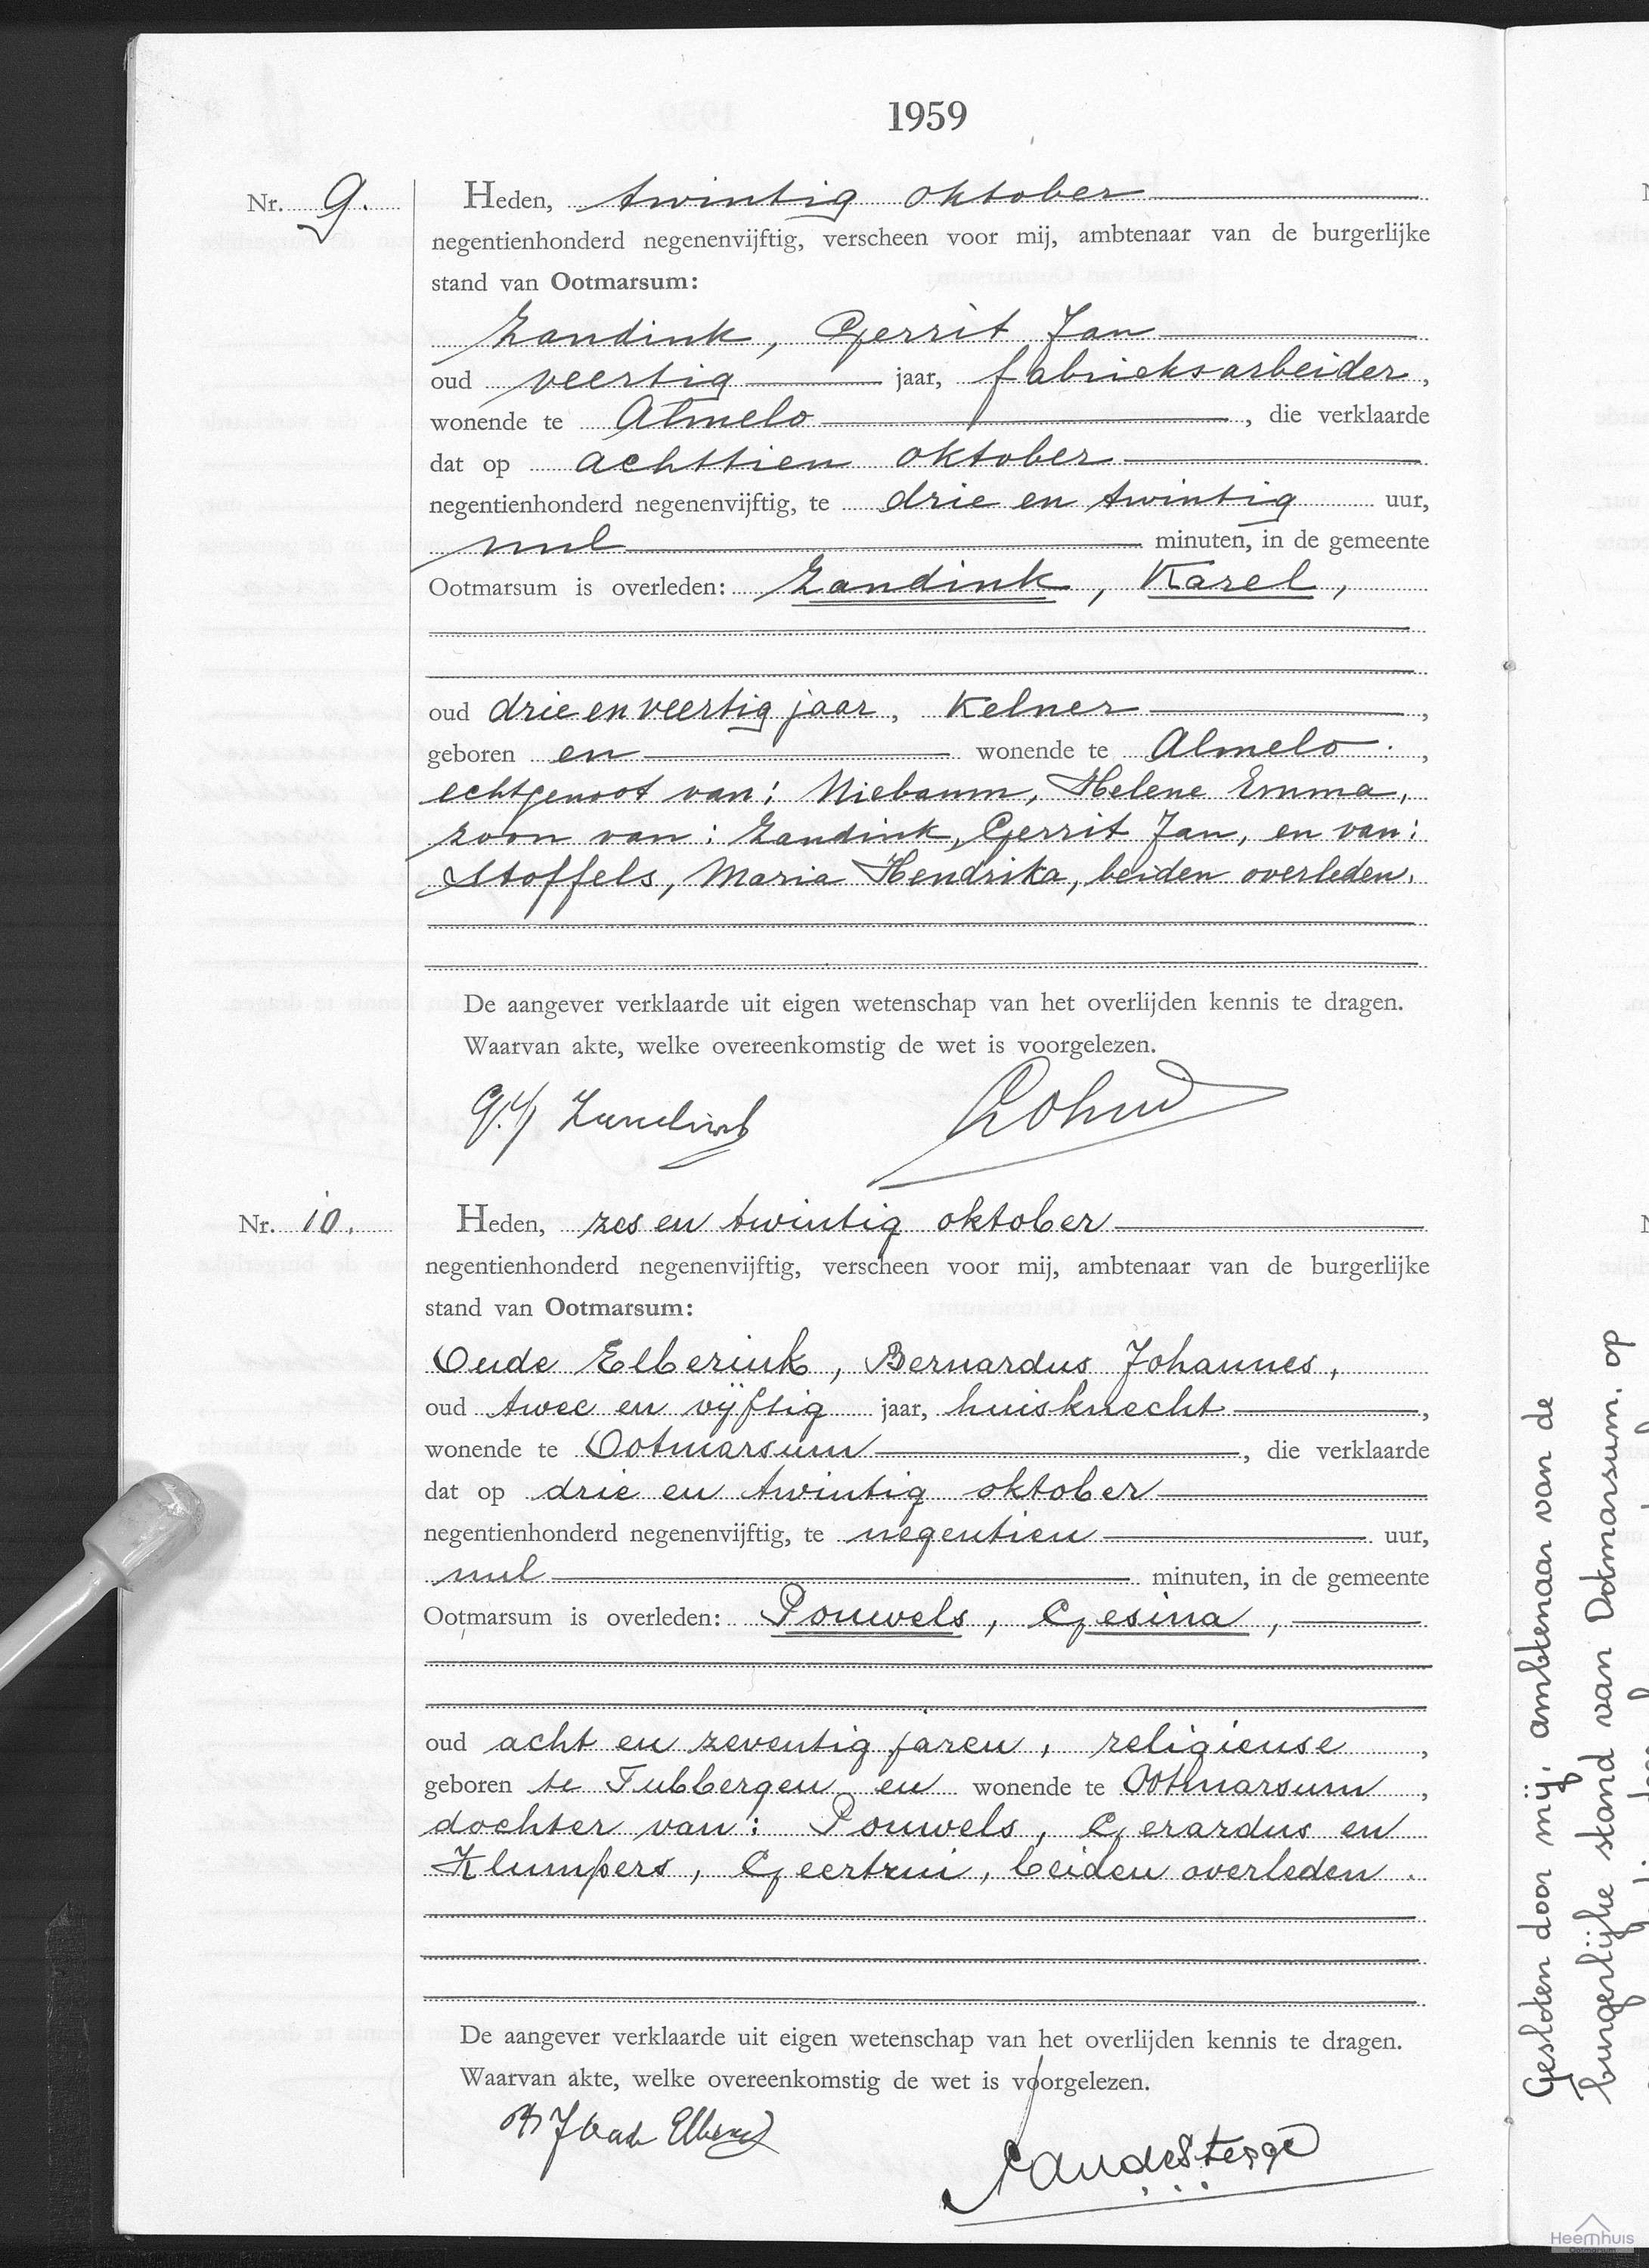 1959
Nr. 9.
Heden, twintig oktober
negentienhonderd negenenvijftig, verscheen voor mij, ambtenaar van de burgerlijke
stand van Ootmarsum:
Zandink, Gerrit Jan
oud veertig jaar, fabrieksarbeider,
wonende te Almelo, die verklaarde
dat op achttien oktober
negentienhonderd negenenvijftig, te drie en twintig uur,
nul minuten, in de gemeente
Ootmarsum is overleden: Zandink, Karel,
oud drie en veertig jaar, Kelner,
geboren en wonende te Almelo,
echtgenoot van: Niebaum, Helene Emma,
zoon van: Zandink, Gerrit Jan, en van:
Stoffels, Maria Hendrika, beiden overleden.
De aangever verklaarde uit eigen wetenschap van het overlijden kennis te dragen.
Waarvan akte, welke overeenkomstig de wet is voorgelezen.
G.J. Zandink
Nr. 10.
Heden, zes en twintig oktober
negentienhonderd negenenvijftig, verscheen voor mij, ambtenaar van de burgerlijke
stand van Ootmarsum:
Oude Elberink, Bernardus Johannes,
oud twee en vijftig jaar, huisknecht,
wonende te Ootmarsum, die verklaarde
dat op drie en twintig oktober
negentienhonderd negenenvijftig, te negentien uur,
nul minuten, in de gemeente
Ootmarsum is overleden: Pouwels, Gesina,
oud acht en zeventig jaren, religieuse,
geboren te Tubbergen en wonende te Ootmarsum,
dochter van: Pouwels, Gerardus en
Klumpers, Geertrui, beiden overleden.
De aangever verklaarde uit eigen wetenschap van het overlijden kennis te dragen.
Waarvan akte, welke overeenkomstig de wet is voorgelezen.
Gesloten door mij, ambtenaar van de
burgerlijke stand van Ootmarsum. op
Heemhuis